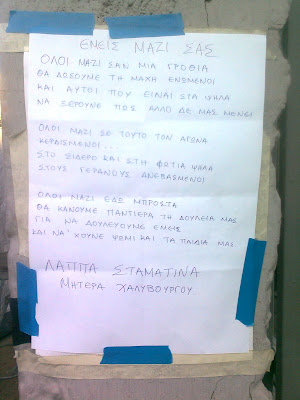 ΕΜΕΙΣ ΜΑΖΙ ΣΑΣ
ΟΛΟΙ ΜΑΖΙ ΣΑΝ ΜΙΑ ΓΡΟΘΙΑ
ΘΑ ΔΩΣΟΥΜΕ ΤΗ ΜΑΧΗ ΕΝΩΜΕΝΟΙ
ΚΑΙ ΑΥΤΟΙ ΠΟΥ ΕΙΝΑΙ ΣΤΑ ΨΗΛΑ
ΝΑ ΞΕΡΟΥΝΕ ΠΩΣ ΑΛΛΟ ΔΕ ΜΑΣ ΜΕΝΕΙ
ΟΛΟΙ ΜΑΖΙ ΣΕ ΤΟΥΤΟ ΤΟΝ ΑΓΩΝΑ
ΚΕΡΔΙΣΜΕΝΟΙ...
ΣΤΟ ΣΙΔΕΡΟ ΚΑΙ ΣΤΗ ΦΩΤΙΑ ΨΗΛΑ
ΣΤΟΥΣ ΓΕΡΑΝΟΥΣ ΑΝΕΒΑΣΜΕΝΟΙ
ΟΛΟΙ ΜΑΖΙ ΕΔΩ ΜΠΡΟΣΤΑ
ΘΑ ΚΑΝΟΥΜΕ ΠΑΝΤΙΕΡΑ ΤΗ ΔΟΥΛΕΙΑ ΜΑΣ
ΓΙΑ ΝΑ ΔΟΥΛΕΥΟΥΜΕ ΕΜΕΙΣ
ΚΑΙ ΝΑ'ΧΟΥΝΕ ΨΩΜΙ ΚΑΙ ΤΑ ΠΑΙΔΙΑ ΜΑΣ
ΛΑΠΠΑ ΣΤΑΜΑΤΙΝΑ
ΜΗΤΕΡΑ ΧΑΛΥΒΟΥΡΓΟΥ